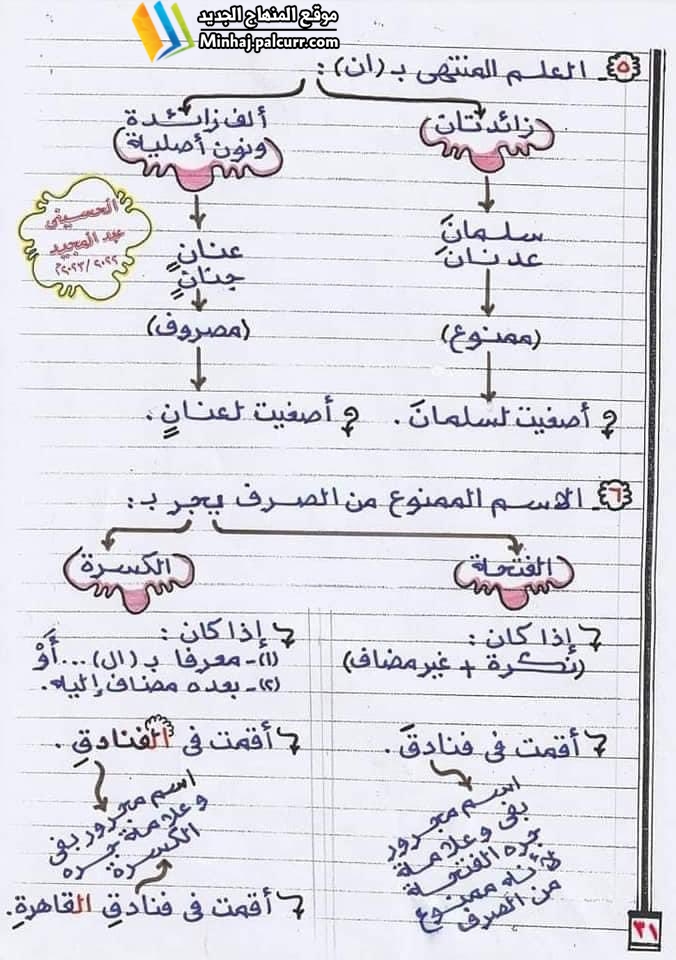 موقع المنهاج الجديد
Minhaj.palcurr.com
٥- العلم المنتهى بـ (ان) :
زائدتان
ألف زائدة
ونون أصلية
سلمانَ
عدنانَ
(ممنوع)
أصغيت لسلمانَ .
عنانٍ
جنانٍ
(مصروف)
أصغيت لعنانٍ .
الحسينى
عبد المجيد
٢٠٢٢/٢٠٢٣م
٦- الاسم الممنوع من الصرف يجر بـ :
الفتحة
إذا كان :
(نكرة + غير مضاف)
أقمت فى فنادقَ .
اسم مجرور
بفى وعلامة
جره الفتحة
لأنه ممنوع
من الصرف
الكسرة
إذا كان :
(١)- معرفا بـ (ال) ... أَوْ
(٢)- بعده مضاف إليه .
أقمت فى الفنادقِ .
اسم مجرور بفى
وعلامة جره
الكسرة
أقمت فى فنادقِ القاهرةِ .
٣١